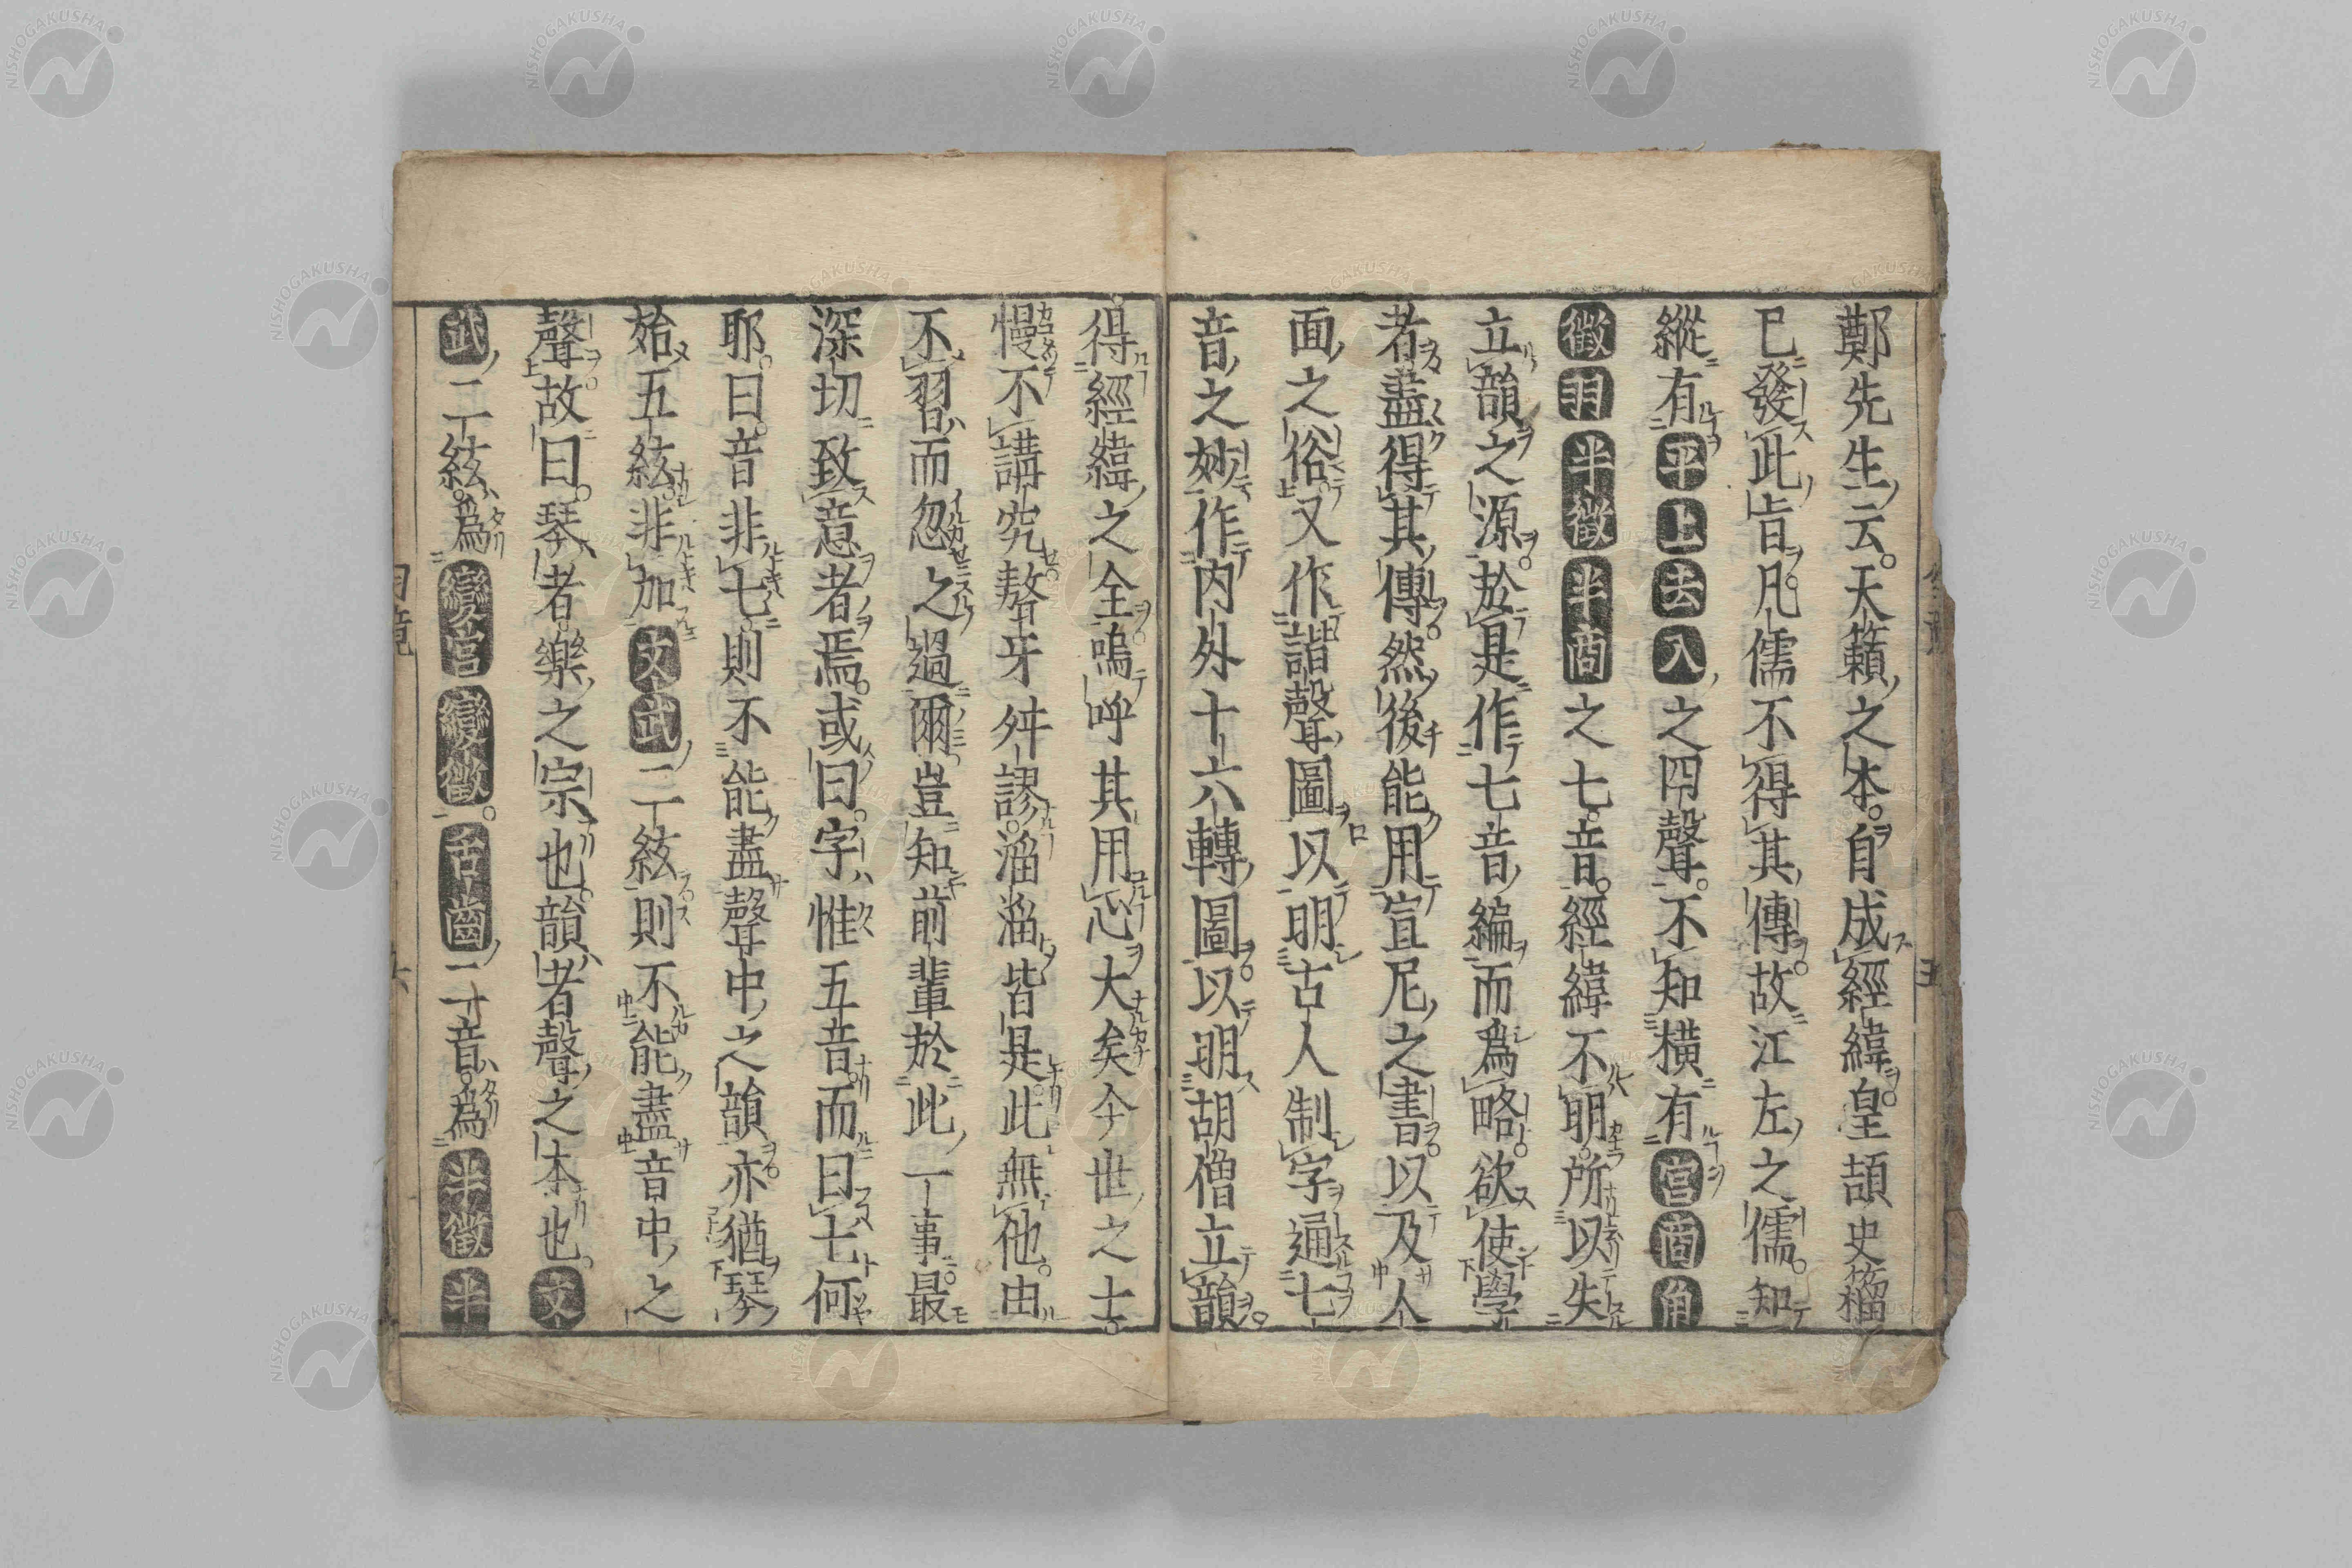 鄭先生云天籟之本自成經緯皇頡史籀
已發此旨凡儒不得其傳故江左之儒知
縱有平上去入之四聲不知橫有宮商角
徵羽半徵半商之七音經緯不明所以失
立韻之源於是作七音編而爲略欲使學
者盡得其傳然後能用宣尼之書以及人
面之俗又作諧聲圖以明古人制字通七
音之妙作內外十六轉圖以明胡僧立韻
得經緯之全嗚呼其用心大矣今世之士
慢不講究聱牙舛謬滔滔皆是此無他由
不習而忽之過爾豈知前輩於此一事最
深切致意者焉或曰字惟五音而曰七何
耶曰音非七則不能盡聲中之韻亦猶琴
始五絃非加文武二絃則不能盡音中之
聲故曰琴者樂之宗也韻者聲之本也文
武二絃爲變宮變徵舌齒二音爲半徵半
NISHOGAKUSHA